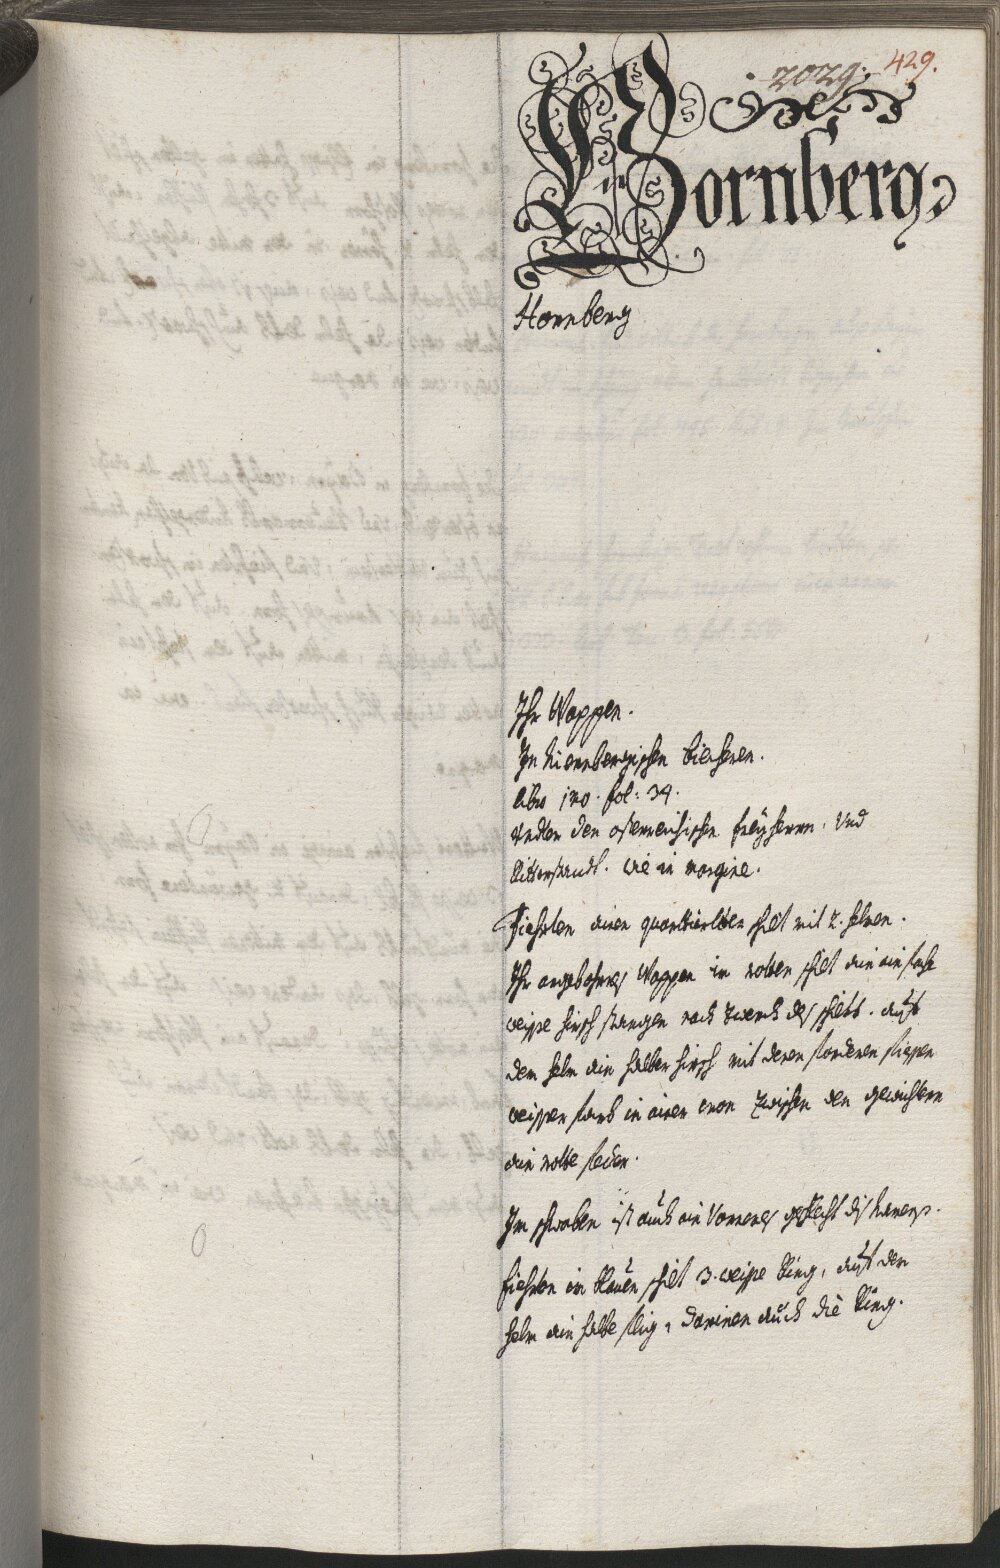 2029.
429.
Die
Hornberg
Hornberg
Ihr Wappen.
In Niernbergischen biecheren.
libro 170. fol: 34.
Vndter den osterreichischen freÿherrn. Vnd
Ritterstandt. wie in margine.
Fiehrten einen quartierlten schilt mit 2. helmen.
Ihr angebohrnes Wappen im rothen schilt ein einfache
weisse hirsch stangen nach zwerch des schilts. auf
dem helm ein halber hirsch mit denen forderen fiessen
weisser farb in einer cron zwischen den gewichtern
ein rothe feder.
Im schwaben ist auch ein Vornemes geschlecht diss namens.
fiehrten im blauen schilt 3. weisse Ring, auf dem
helm ein halbe flüg, darinen auch die Ring.